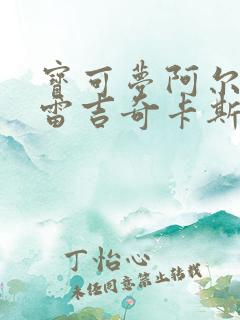 寶可夢阿尔
雷吉奇卡斯
丁怡心
未经同意禁止转载